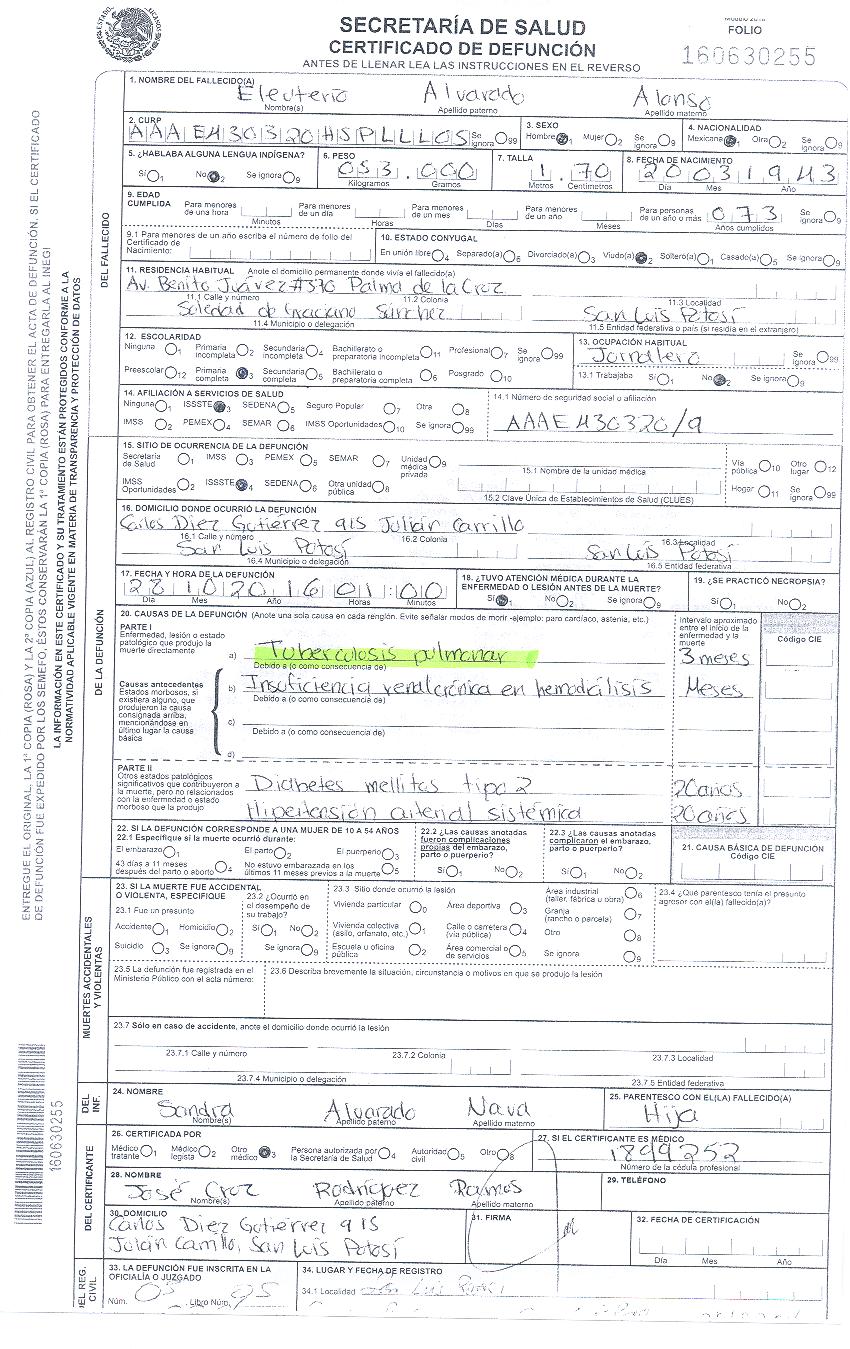 SECRETARÍA DE SALUD
CERTIFICADO DE DEFUNCIÓN
ANTES DE LLENAR LEA LAS INSTRUCCIONES EN EL REVERSO
FOLIO
160630255
ENTREGUE EL ORIGINAL, LA 1ª COPIA (ROSA) Y LA 2ª COPIA (AZUL) AL REGISTRO CIVIL PARA OBTENER EL ACTA DE DEFUNCIÓN, SI EL CERTIFICADO
DE DEFUNCIÓN FUE EXPEDIDO POR LOS SEMEFO, ÉSTOS CONSERVARÁN LA 1ª COPIA (ROSA) PARA ENTREGARLA AL INEGI
LA INFORMACIÓN EN ESTE CERTIFICADO Y SU TRATAMIENTO ESTÁN PROTEGIDOS CONFORME A LA
NORMATIVIDAD APLICABLE VIGENTE EN MATERIA DE TRANSPARENCIA Y PROTECCIÓN DE DATOS
160630255
DEL FALLECIDO
1. NOMBRE DEL FALLECIDO(A)
Eleuterio Alvarado Alonso
Nombre(s) Apellido paterno Apellido materno
2. CURP AAAE430320HSPLLL05 Se ignora 99
3. SEXO Hombre 1 Mujer 2 Se ignora 9
4. NACIONALIDAD Mexicana 1 Otra 2 Se ignora 9
5. ¿HABLABA ALGUNA LENGUA INDÍGENA? Sí 1 No 2 Se ignora 9
6. PESO 053.000 Kilogramos Gramos
7. TALLA 1.70 Metros Centímetros
8. FECHA DE NACIMIENTO 20031943 Día Mes Año
9. EDAD CUMPLIDA
Para menores de una hora Minutos
Para menores de un día Horas
Para menores de un mes Días
Para menores de un año Meses
Para personas de un año o más 073 Años cumplidos Se ignora 9
9.1 Para menores de un año escriba el número de folio del Certificado de Nacimiento:
10. ESTADO CONYUGAL
En unión libre 4 Separado(a) 6 Divorciado(a) 3 Viudo(a) 2 Soltero(a) 1 Casado(a) 5 Se ignora 9
11. RESIDENCIA HABITUAL Anote el domicilio permanente donde vivía el fallecido(a)
Av. Benito Juárez #376 Palma de la Cruz
11.1 Calle y número 11.2 Colonia 11.3 Localidad
Soledad de Graciano Sánchez San Luis Potosí
11.4 Municipio o delegación 11.5 Entidad federativa o país (si residía en el extranjero)
12. ESCOLARIDAD
Ninguna 1 Primaria incompleta 2 Secundaria incompleta 4 Bachillerato o preparatoria incompleta 11 Profesional 7 Se ignora 99
Preescolar 12 Primaria completa 3 Secundaria completa 5 Bachillerato o preparatoria completa 6 Posgrado 10
13. OCUPACIÓN HABITUAL
Jornalero Se ignora 99
13.1 Trabajaba Sí 1 No 2 Se ignora 9
14. AFILIACIÓN A SERVICIOS DE SALUD
Ninguna 1 ISSSTE 3 SEDENA 5 Seguro Popular 7 Otra 8
IMSS 2 PEMEX 4 SEMAR 6 IMSS Oportunidades 10 Se ignora 99
14.1 Número de seguridad social o afiliación
AAAE430320/9
DE LA DEFUNCIÓN
15. SITIO DE OCURRENCIA DE LA DEFUNCIÓN
Secretaría de Salud 1 IMSS 3 PEMEX 5 SEMAR 7 Unidad médica privada 9
15.1 Nombre de la unidad médica
Vía pública 10 Otro lugar 12
IMSS Oportunidades 2 ISSSTE 4 SEDENA 6 Otra unidad pública 8
15.2 Clave Única de Establecimientos de Salud (CLUES)
Hogar 11 Se ignora 99
16. DOMICILIO DONDE OCURRIÓ LA DEFUNCIÓN
Carlos Diez Gutierrez 915 Julián Carrillo
16.1 Calle y número 16.2 Colonia 16.3 Localidad
San Luis Potosí San Luis Potosí
16.4 Municipio o delegación 16.5 Entidad federativa
17. FECHA Y HORA DE LA DEFUNCIÓN
2810201601:00
Día Mes Año Horas Minutos
18. ¿TUVO ATENCIÓN MÉDICA DURANTE LA ENFERMEDAD O LESIÓN ANTES DE LA MUERTE?
Sí 1 No 2 Se ignora 9
19. ¿SE PRACTICÓ NECROPSIA?
Sí 1 No 2
20. CAUSAS DE LA DEFUNCIÓN (Anote una sola causa en cada renglón. Evite señalar modos de morir -ejemplo: paro cardíaco, astenia, etc.)
Intervalo aproximado entre el inicio de la enfermedad y la muerte
Código CIE
PARTE I
Enfermedad, lesión o estado patológico que produjo la muerte directamente
a) Tuberculosis pulmonar 3 meses
Debido a (o como consecuencia de)
Causas antecedentes
Estados morbosos, si existiera alguno, que produjeron la causa consignada arriba, mencionándose en último lugar la causa básica
b) Insuficiencia renal crónica en hemodiálisis Meses
Debido a (o como consecuencia de)
c)
Debido a (o como consecuencia de)
d)
PARTE II
Otros estados patológicos significativos que contribuyeron a la muerte, pero no relacionados con la enfermedad o estado morboso que la produjo
Diabetes mellitus tipo 2 20 años
Hipertensión arterial sistémica 20 años
22. SI LA DEFUNCIÓN CORRESPONDE A UNA MUJER DE 10 A 54 AÑOS
22.1 Especifique si la muerte ocurrió durante:
El embarazo 1 El parto 2 El puerperio 3
43 días a 11 meses después del parto o aborto 4 No estuvo embarazada en los últimos 11 meses previos a la muerte 5
22.2 ¿Las causas anotadas fueron complicaciones propias del embarazo, parto o puerperio?
Sí 1 No 2
22.3 ¿Las causas anotadas complicaron el embarazo, parto o puerperio?
Sí 1 No 2
21. CAUSA BÁSICA DE DEFUNCIÓN
Código CIE
MUERTES ACCIDENTALES Y VIOLENTAS
23. SI LA MUERTE FUE ACCIDENTAL O VIOLENTA, ESPECIFIQUE
23.1 Fue un presunto
Accidente 1 Homicidio 2
Suicidio 3 Se ignora 9
23.2 ¿Ocurrió en el desempeño de su trabajo?
Sí 1 No 2
Se ignora 9
23.3 Sitio donde ocurrió la lesión
Vivienda particular 0 Área deportiva 3 Área industrial (taller, fábrica u obra) 6
Vivienda colectiva (asilo, orfanato, etc.) 1 Calle o carretera (vía pública) 4 Granja (rancho o parcela) 7
Otro 8
Escuela u oficina pública 2 Área comercial o de servicios 5 Se ignora 9
23.4 ¿Qué parentesco tenía el presunto agresor con el(la) fallecido(a)?
23.5 La defunción fue registrada en el Ministerio Público con el acta número:
23.6 Describa brevemente la situación, circunstancia o motivos en que se produjo la lesión
23.7 Sólo en caso de accidente, anote el domicilio donde ocurrió la lesión
23.7.1 Calle y número 23.7.2 Colonia 23.7.3 Localidad
23.7.4 Municipio o delegación 23.7.5 Entidad federativa
DEL INF.
24. NOMBRE
Sandra Alvarado Nava
Nombre(s) Apellido paterno Apellido materno
25. PARENTESCO CON EL(LA) FALLECIDO(A)
Hija
DEL CERTIFICANTE
26. CERTIFICADA POR
Médico tratante 1 Médico legista 2 Otro médico 3 Persona autorizada por la Secretaría de Salud 4 Autoridad civil 5 Otro 8
27. SI EL CERTIFICANTE ES MÉDICO
1899252
Número de la cédula profesional
28. NOMBRE
José Cruz Rodríguez Ramos
Nombre(s) Apellido paterno Apellido materno
29. TELÉFONO
30. DOMICILIO
Carlos Diez Gutiérrez 915
Julián Carrillo, San Luis Potosí
31. FIRMA
32. FECHA DE CERTIFICACIÓN
Día Mes Año
DEL REG. CIVIL
33. LA DEFUNCIÓN FUE INSCRITA EN LA OFICIALÍA O JUZGADO
Núm. 05 Libro Núm.
34. LUGAR Y FECHA DE REGISTRO
34.1 Localidad San Luis Potosí